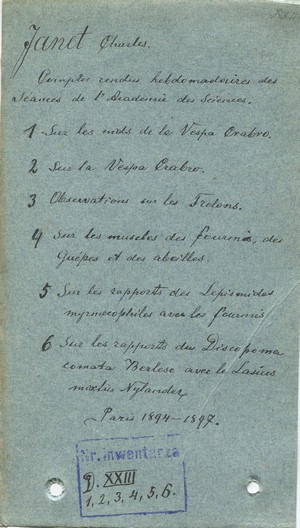 Janet Charles.
Comptes rendus hebdomadaires des
Séances de l'Academie des Sciences.
1 Sur les nids de la Vespa Crabro.
2 Sur la Vespa Crabro.
3 Observations sur les Frelons.
4 Sur les muscles des fourmis, des
Guêpes et des abeilles.
5 Sur les rapports des Lepismides
myrmecophiles avec les fourmis
6 Sur les rapports du Discopoma
comata Berlese avec le Lasius
mixtus Nylander,
Paris 1894-1897.
Nr. inwentarza
XXIII
1, 2, 3, 4, 5, 6.